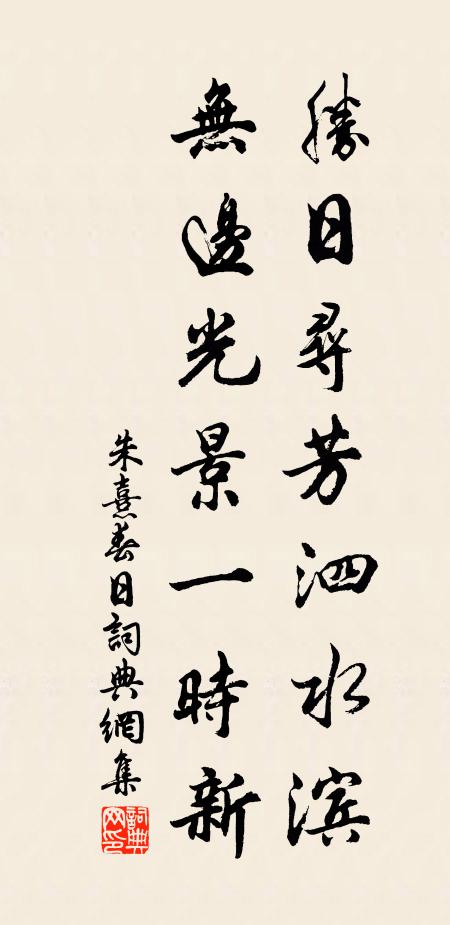 勝日尋芳泗水滨
無邊光景一時新
朱熹春日詞典網集
詞典网印